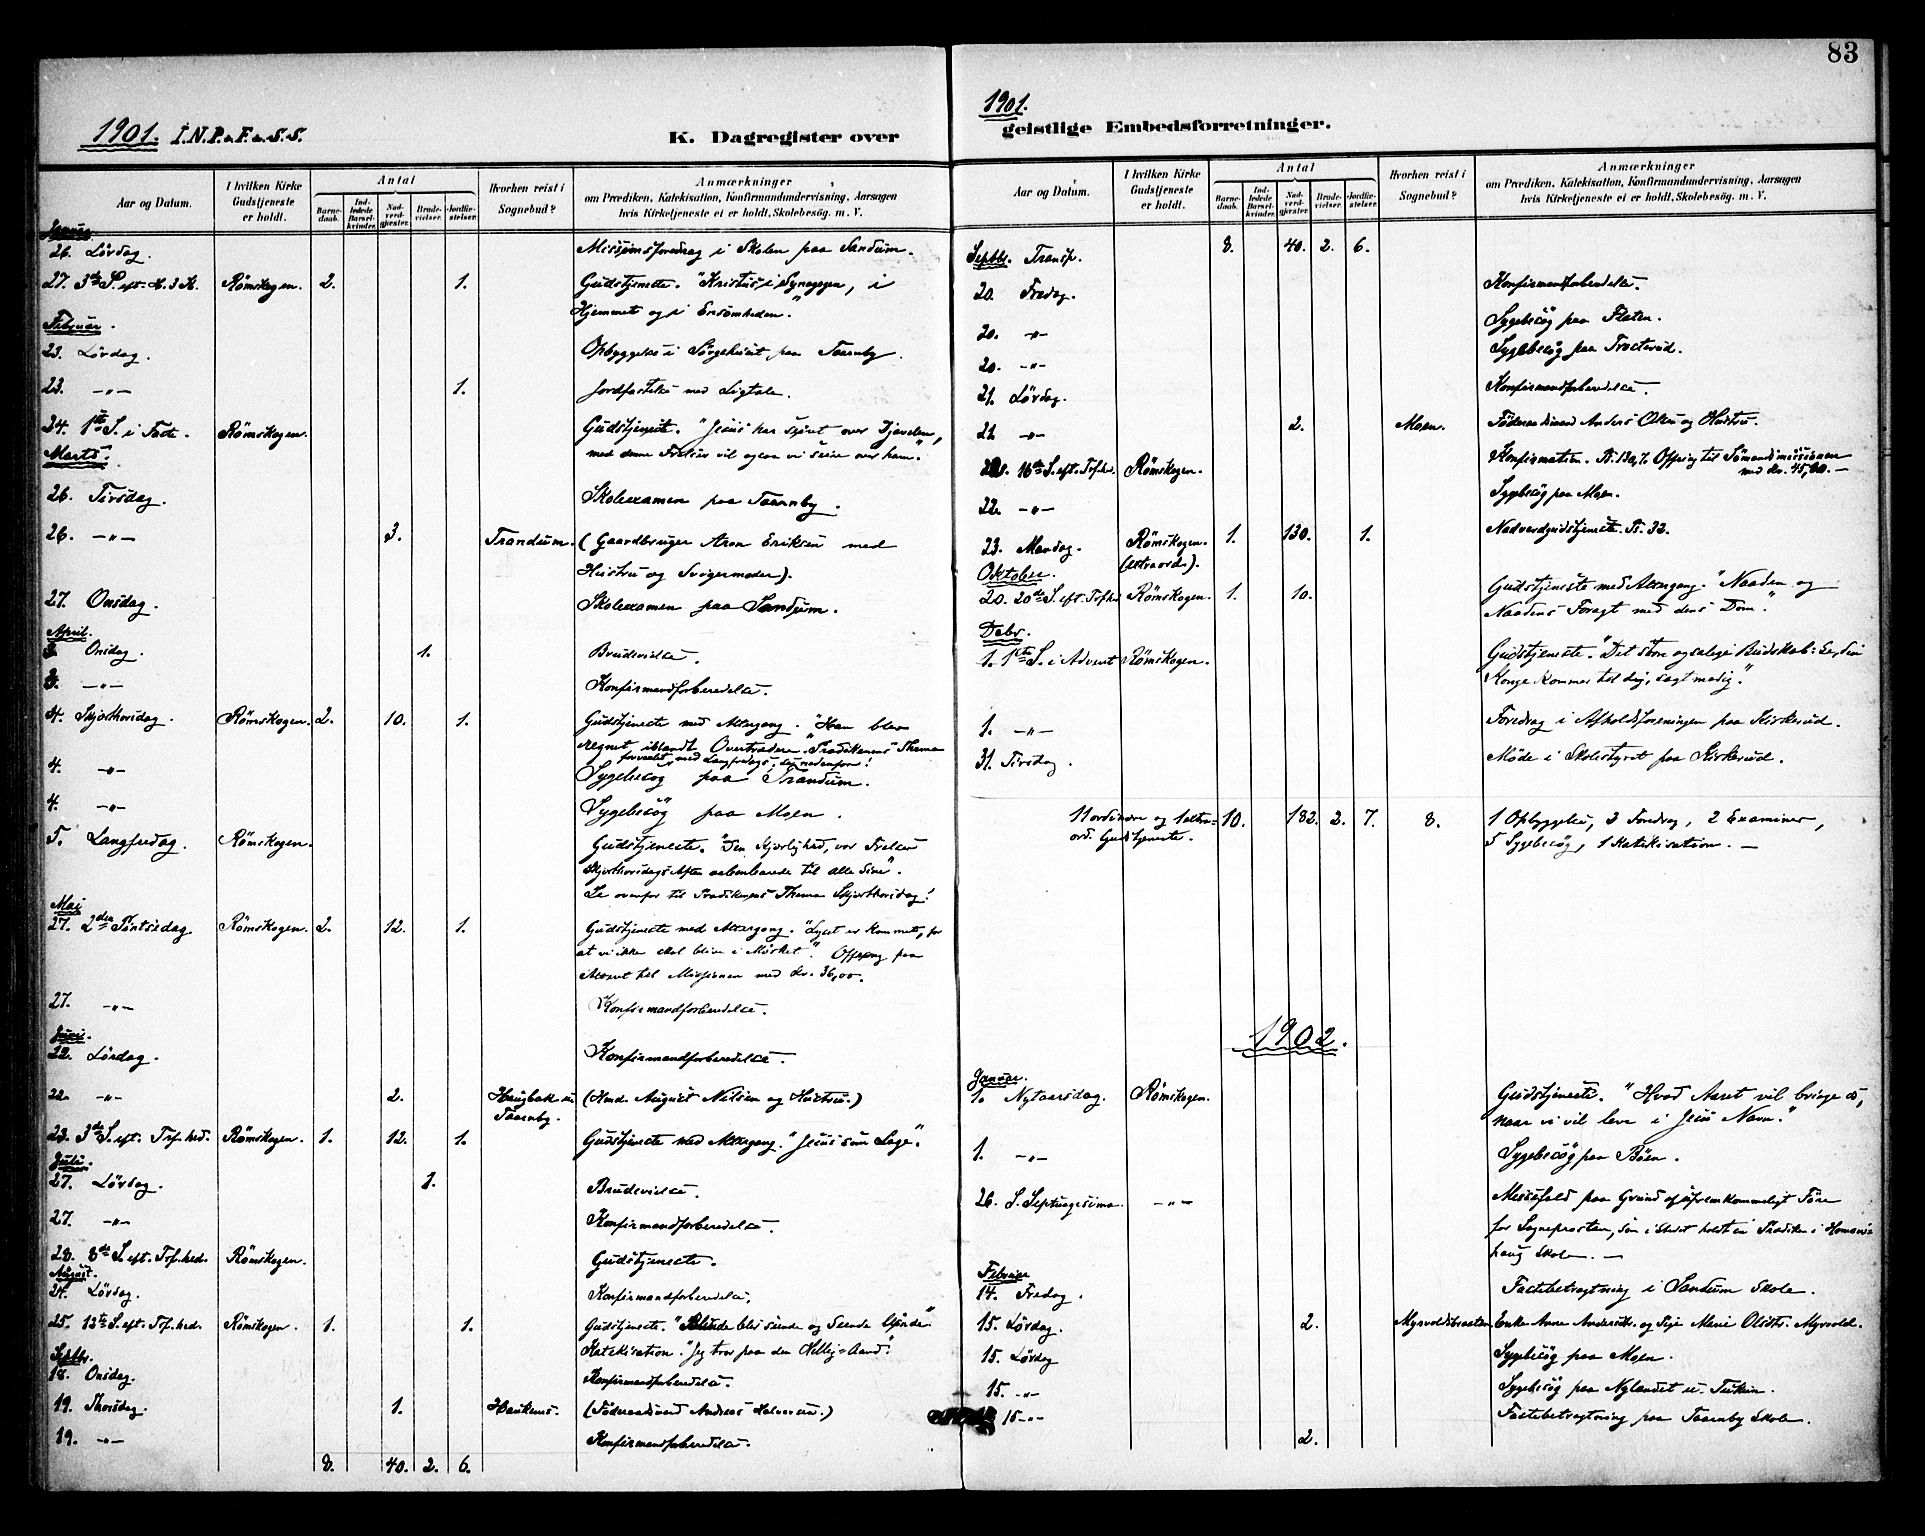 83
1901. I.N.P. & F. & S.S.
K. Dagregister over
1901.
geistlige Embedsforretninger.
Aar og Datum.
I hvilken Kirke Gudstjeneste er holdt.
Antal
Barnedaab.
Indledede Barselkvinder.
Nadverdgjester.
Brudevielser.
Jordfæstelser.
Hvorhen reist i Sognebud?
Anmærkninger
om Prædiken, Katekisation, Konfirmandundervisning, Aarsagen
hvis Kirketjeneste ei er holdt, Skolebesøg. m. V.
Januar
26. Lördag. Missionsforedrag i Skolen paa Sandum.
27. 3de S. eft. H. 3 K. Römskogen. 2. 1. Gudstjeneste. "Kristus i Synagogen, i
Hjemmet og i Ensomheden."
Februar.
23. Lördag. Opbyggelse i Sörgehuset paa Taarnby.
23. -"- 1. Jordfæstelse med Ligtale.
24. 1ste S. i Faste. Römskogen. Gudstjeneste. "Jesus har seiret over Djævelen,
med denne Frelser vil ogsaa vi seire over ham."
Marts.
26. Tirsdag. Skoleexamen paa Taarnby.
26. -"- 3. Trandum. (Gaardbruger Aron Eriksen med
Hustru og Svigermoder).
27. Onsdag. Skoleexamen paa Sandum.
April.
3. Onsdag. 1. Brudevielse.
3. -"- Konfirmandforberedelse.
4. Skjærthorsdag. Römskogen. 2. 10. 1. Gudstjeneste med Altergang. "Han blev
regnet iblandt Overtrædere." Prædikenens Thema
forvexlet med Langfredags, se nedenfor!
4. -"- Sygebesög paa Trandum.
4. -"- Sygebesög paa Moen.
5. Langfredag. Römskogen. Gudstjeneste. "Den Kjærlighed, vor Frelser
Skjærthorsdags Aften aabenbarede til alle Sine".
Se ovenfor til Prædikenens Thema Skjærthorsdag!
Mai
27. 2den Pintsedag Römskogen. 2. 12. 1. Gudstjeneste med Altergang. "Lyset er kommet, for
at vi ikke skal blive i Mörket." Offring paa
Alteret til Missionen med Kr. 36,00.
27. -"- Konfirmandforberedelse.
Juni.
22. Lördag. Konfirmandforberedelse.
22. -"- 2. Haugbak u. Taarnby. (Hmd. August Nilsen og Hustru.)
23. 3de S. eft. Tref.hed. Römskogen. 1. 12. 1. Gudstjeneste med Altergang. "Jesus som Læge".
Juli.
27. Lördag. 1. Brudevielse.
27. -"- Konfirmandforberedelse.
28. 8de S. eft. Tref.hed. Römskogen. Gudstjeneste.
August.
24. Lördag. Konfirmandforberedelse.
25. 12te S. eft. Tref.hed. Römskogen. 1. 1. Gudstjeneste. "Blinde blev seende og Seende blinde"
Katekisation. "Jeg tror paa den Hellig-Aand."
Septbr.
18. Onsdag. Konfirmandforberedelse.
19. Thorsdag. 1. Haukenes. (Föderaadsmd Andreas Halvorsen.)
19. -"- Konfirmandforberedelse.
8. 40. 2. 6.
Aar og Datum.
I hvilken Kirke Gudstjeneste er holdt.
Antal
Barnedaab.
Indledede Barselkvinder.
Nadverdgjester.
Brudevielser.
Jordfæstelser.
Hvorhen reist i Sognebud?
Anmærkninger
om Prædiken, Katekisation, Konfirmandundervisning, Aarsagen
hvis Kirketjeneste ei er holdt, Skolebesøg. m. V.
Septbr. Transp. 8. 40. 2. 6.
20. Fredag. Konfirmandforberedelse.
20. -"- Sygebesög paa Flaten.
20. -"- Sygebesög paa Tracterud.
21. Lördag. Konfirmandforberedelse.
21. -"- 2. Moen. Föderaadsmand Anders Olsen og Hustru.
22. 16de S. eft. Tref.hd. Römskogen. Konfirmation. Ps. 130,7. Offring til Sömandsmissionen
med Kr. 45,00.-
22. -"- Sygebesög paa Moen.
23. Mandag. Römskogen. (extraord.). 1. 130. 1. Nadverdgudstjeneste. Ps. 32.
Oktober.
20. 20de S. eft. Tref.hd Römskogen. 1. 10. Gudstjeneste med Altergang. "Naaden og
Naadens Foragt med dens Dom."
Decbr.
1. 1ste S. i Advent Römskogen. Gudstjeneste. "Det store og salige Budskab: Se, din
Konge kommer til dig, sagtmodig."
1. -"- Foredrag i Afholdsforeningen paa Kirkerud.
31. Tirsdag. Möde i Skolestyret paa Kirkerud.
11 ordinære og 1 extraord. Gudstjeneste. 10. 182. 2. 7. 8. 1 Opbyggelse, 3 Foredrag, 2 Examiner,
5 Sygebesög, 1 Katekisation. -
1902.
Januar.
1. Nytaarsdag. Römskogen. Gudstjeneste. "Hvad Aaret vil bringe os,
naar vi vil leve i Jesu Navn."
1. -"- Sygebesög paa Böen.
26. S. Septuagesima. -"- Messefald paa Grund af ufremkommeligt Före
for Sogneprästen, som i Stedet holdt en Prædiken i Homans-
haug Skole. -
Februar
14. Fredag. Fastebetragtning i Sandum Skole.
15. Lördag. 2. Myrvoldbraaten. Enke Anne Andersdt. og Pige Marie Olsdtr. Myrvold.
15. Lördag Sygebesög paa Moen.
15. -"- Sygebesög paa Nylandet u. Tukun.
15 -"- Fastebetragtning paa Taarnby Skole.
2.